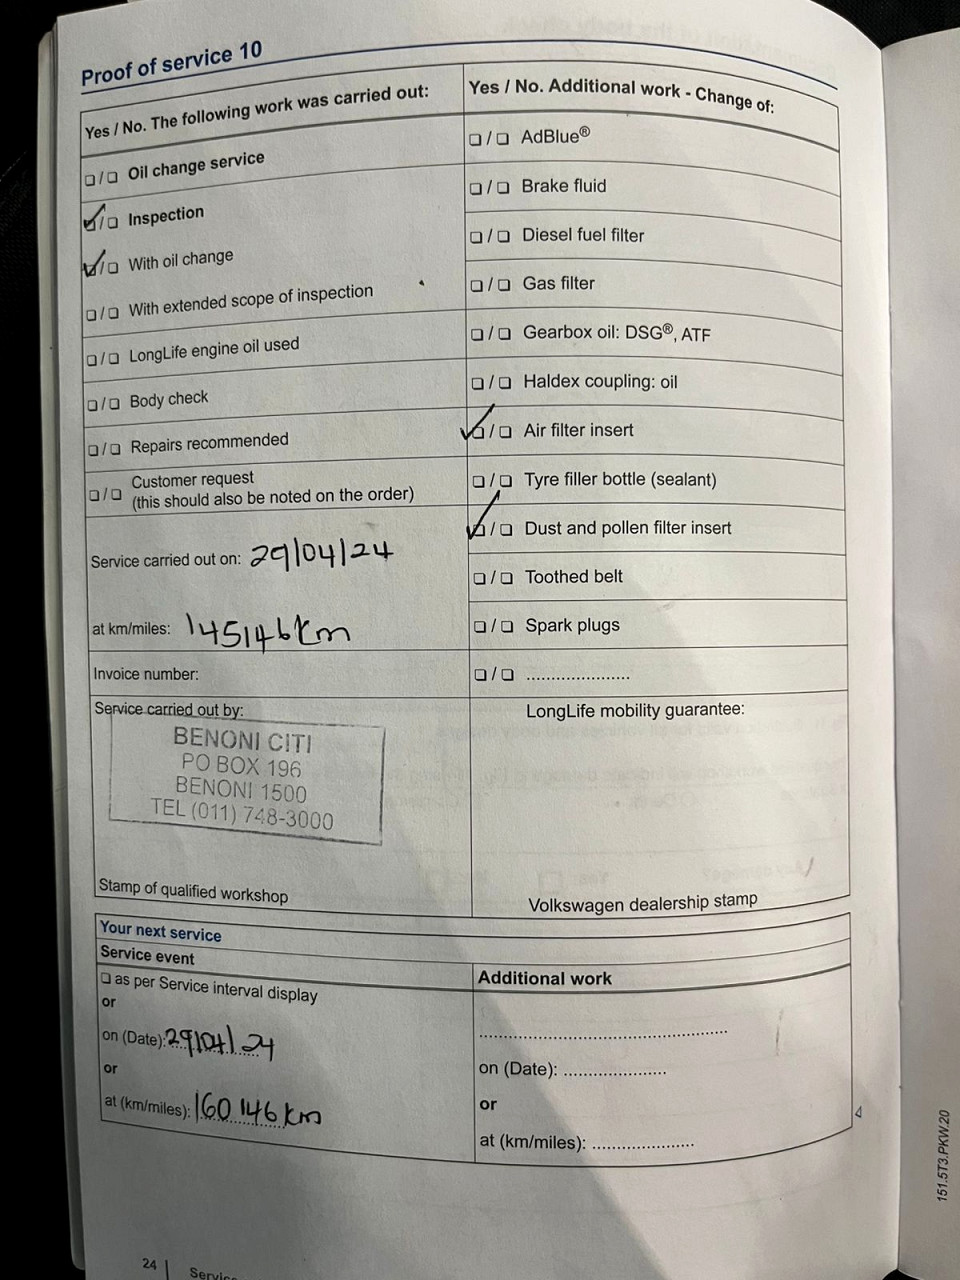 Proof of service 10
Yes / No. The following work was carried out:
❑/❑ Oil change service
❑/❑ Inspection
❑/❑ With oil change
❑/❑ With extended scope of inspection
❑/❑ LongLife engine oil used
❑/❑ Body check
❑/❑ Repairs recommended
❑/❑ Customer request
(this should also be noted on the order)
Service carried out on: 29/04/24
at km/miles: 145146km
Invoice number:
Service carried out by:
BENONI CITI
PO BOX 196
BENONI 1500
TEL (011) 748-3000
Stamp of qualified workshop
Yes / No. Additional work - Change of:
❑/❑ AdBlue®
❑/❑ Brake fluid
❑/❑ Diesel fuel filter
❑/❑ Gas filter
❑/❑ Gearbox oil: DSG®, ATF
❑/❑ Haldex coupling: oil
❑/❑ Air filter insert
❑/❑ Tyre filler bottle (sealant)
❑/❑ Dust and pollen filter insert
❑/❑ Toothed belt
❑/❑ Spark plugs
❑/❑ .....................
LongLife mobility guarantee:
Volkswagen dealership stamp
Your next service
Service event
❑ as per Service interval display
or
on (Date): 29/04/24
or
at (km/miles): 160 146 km
Additional work
..................................................
on (Date): ....................
or
at (km/miles): ....................
24
Servic
151.5T3.PKW.20